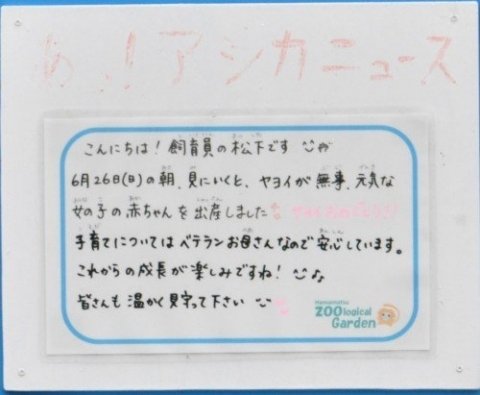 あ、！アシカニュース
こんにちは！飼育員の松下です
6月26日(日)の朝、見にいくと、ヤヨイが無事、元気な
女の子の赤ちゃんを出産しました ヤヨイおめでとう!!
子育てについてはベテランお母さんなので安心しています。
これからの成長が楽しみですね！♪
皆さんも温かく見守って下さい
Hamamatsu
ZOOlogical
Garden